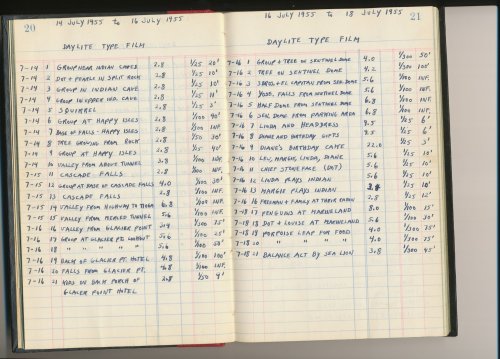 20
14 JULY 1955 to 16 JULY 1955
DAYLITE TYPE FILM
7-14 1 GROUP NEAR INDIAN CAVES 2.8 1/25 20'
7-14 2 DOT + PEARLS IN SPLIT ROCK 2.8 1/25 10'
7-14 3 GROUP IN INDIAN CAVE 2.8 1/25 8'
7-14 4 GROUP IN UPPER IND. CAVE 2.8 1/25 11'
7-14 5 SQUIRREL 2.8 1/25 3'
7-14 6 GROUP AT HAPPY ISLES 2.8 1/100 40'
7-14 7 BASE OF FALLS - HAPPY ISLES 2.8 1/100 INF.
7-14 8 TREE GROWING FROM ROCK 2.8 1/50 30'
7-14 9 GROUP AT HAPPY ISLES 2.8 1/25 40'
7-14 10 VALLEY FROM ABOUT TUNNEL 3.8 1/100 INF.
7-15 11 CASCADE FALLS 2.8 1/100 INF.
7-15 12 GROUP AT BASE OF CASCADE FALLS 4.0 1/100 30'
7-15 13 CASCADE FALLS 2.8 1/100 INF.
7-15 14 VALLEY FROM HIGHWAY TO TIOGA 6.8 1/100 INF.
7-15 15 VALLEY FROM MERCED TUNNEL 5.6 1/100 INF.
7-16 16 VALLEY FROM GLACIER POINT INF.
7-16 17 GROUP AT GLACIER PT. LOOKOUT 5.6 1/100 25'
7-16 18 " " " " " 5.6 1/100 50'
7-16 19 BACK OF GLACIER PT. HOTEL 4.8 1/300 100'
7-16 20 FALLS FROM GLACIER PT. 6.8 1/100 INF.
7-16 21 KIDS ON BACK PORCH OF 2.8 1/50 9'
GLACIER POINT HOTEL
16 JULY 1955 to 18 JULY 1955
21
DAYLITE TYPE FILM
7-16 1 GROUP + TREE ON SENTINEL DOME 4.0 1/300 50'
7-16 2 TREE ON SENTINEL DOME 4.2 1/300 100'
7-16 3 3 BROS. + EL CAPITAN FROM SEN. DOME 5.6 1/100 INF.
7-16 4 YOSE. FALLS FROM SENTINEL DOME 5.6 1/100 INF.
7-16 5 HALF DOME FROM SENTINEL DOME 6.8 1/100 INF.
7-16 6 SEN. DOME FROM PARKING AREA 6.8 1/100 INF.
7-16 7 LINDA AND HEADDRESS 9.5 1/25 6'
7-16 8 DIANE AND BIRTHDAY GIFTS 9.5 1/25 6'
7-16 9 DIANE'S BIRTHDAY CAKE 22.0 1/25 3'
7-16 10 LEU, MARGIE, LINDA, DIANE 5.6 1/25 10'
7-16 11 CHIEF STONE FACE (DOT) 5.6 1/25 10'
7-16 12 LINDA PLAYS INDIAN 5.6 1/25 10'
7-16 13 MARGIE PLAYS INDIAN 1/25 10'
7-16 16 FREEMAN + FAMILY AT THEIR CABIN 2.8 1/25 12'
7-18 17 PENGUINS AT MARINELAND 8.0 1/100 15'
7-18 18 DOT + LOUISE AT MARINELAND 5.6 1/100 30'
7-18 19 PORPOISE LEAP FOR FOOD 4.0 1/300 75'
7-18 20 " " " " 4.0 1/300 75'
7-18 21 BALANCE ACT BY SEA LION 3.8 1/300 45'